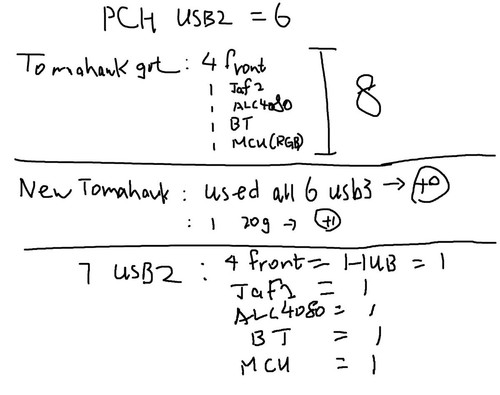 PCH USB2 = 6
Tomahawk got : 4 front
1 Jaf2
1 ALC4080
1 BT
1 MCU(RGB)
8
New Tomahawk : used all 6 usb3 → +0
: 1 20g → +1
7 USB2 : 4 front = HUB = 1
Jaf2 = 1
ALC4080 = 1
BT = 1
MCU = 1